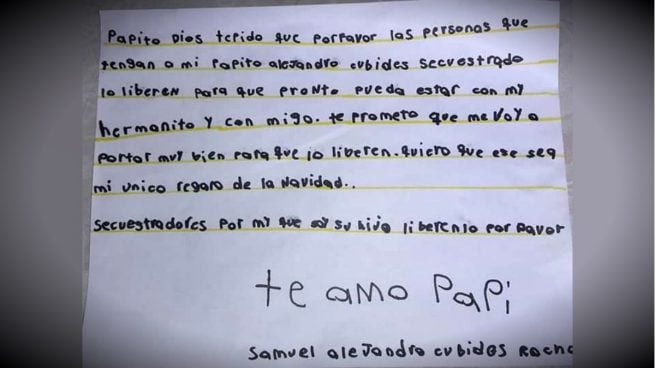 Papito Dios tepido que porfavor las personas que
tengan a mi Papito alejandro cubides secuestrado
lo liberen para que pronto pueda estar con my
hermanito y con migo. te prometo que me voy a
portar muy bien para que lo liberen. quiero que ese sea
mi unico regaro de la Navidad..
Secuestradores por mi que soy su hijo liberenlo por pavor
te amo Papi
Samuel alejandro cubides Rocha